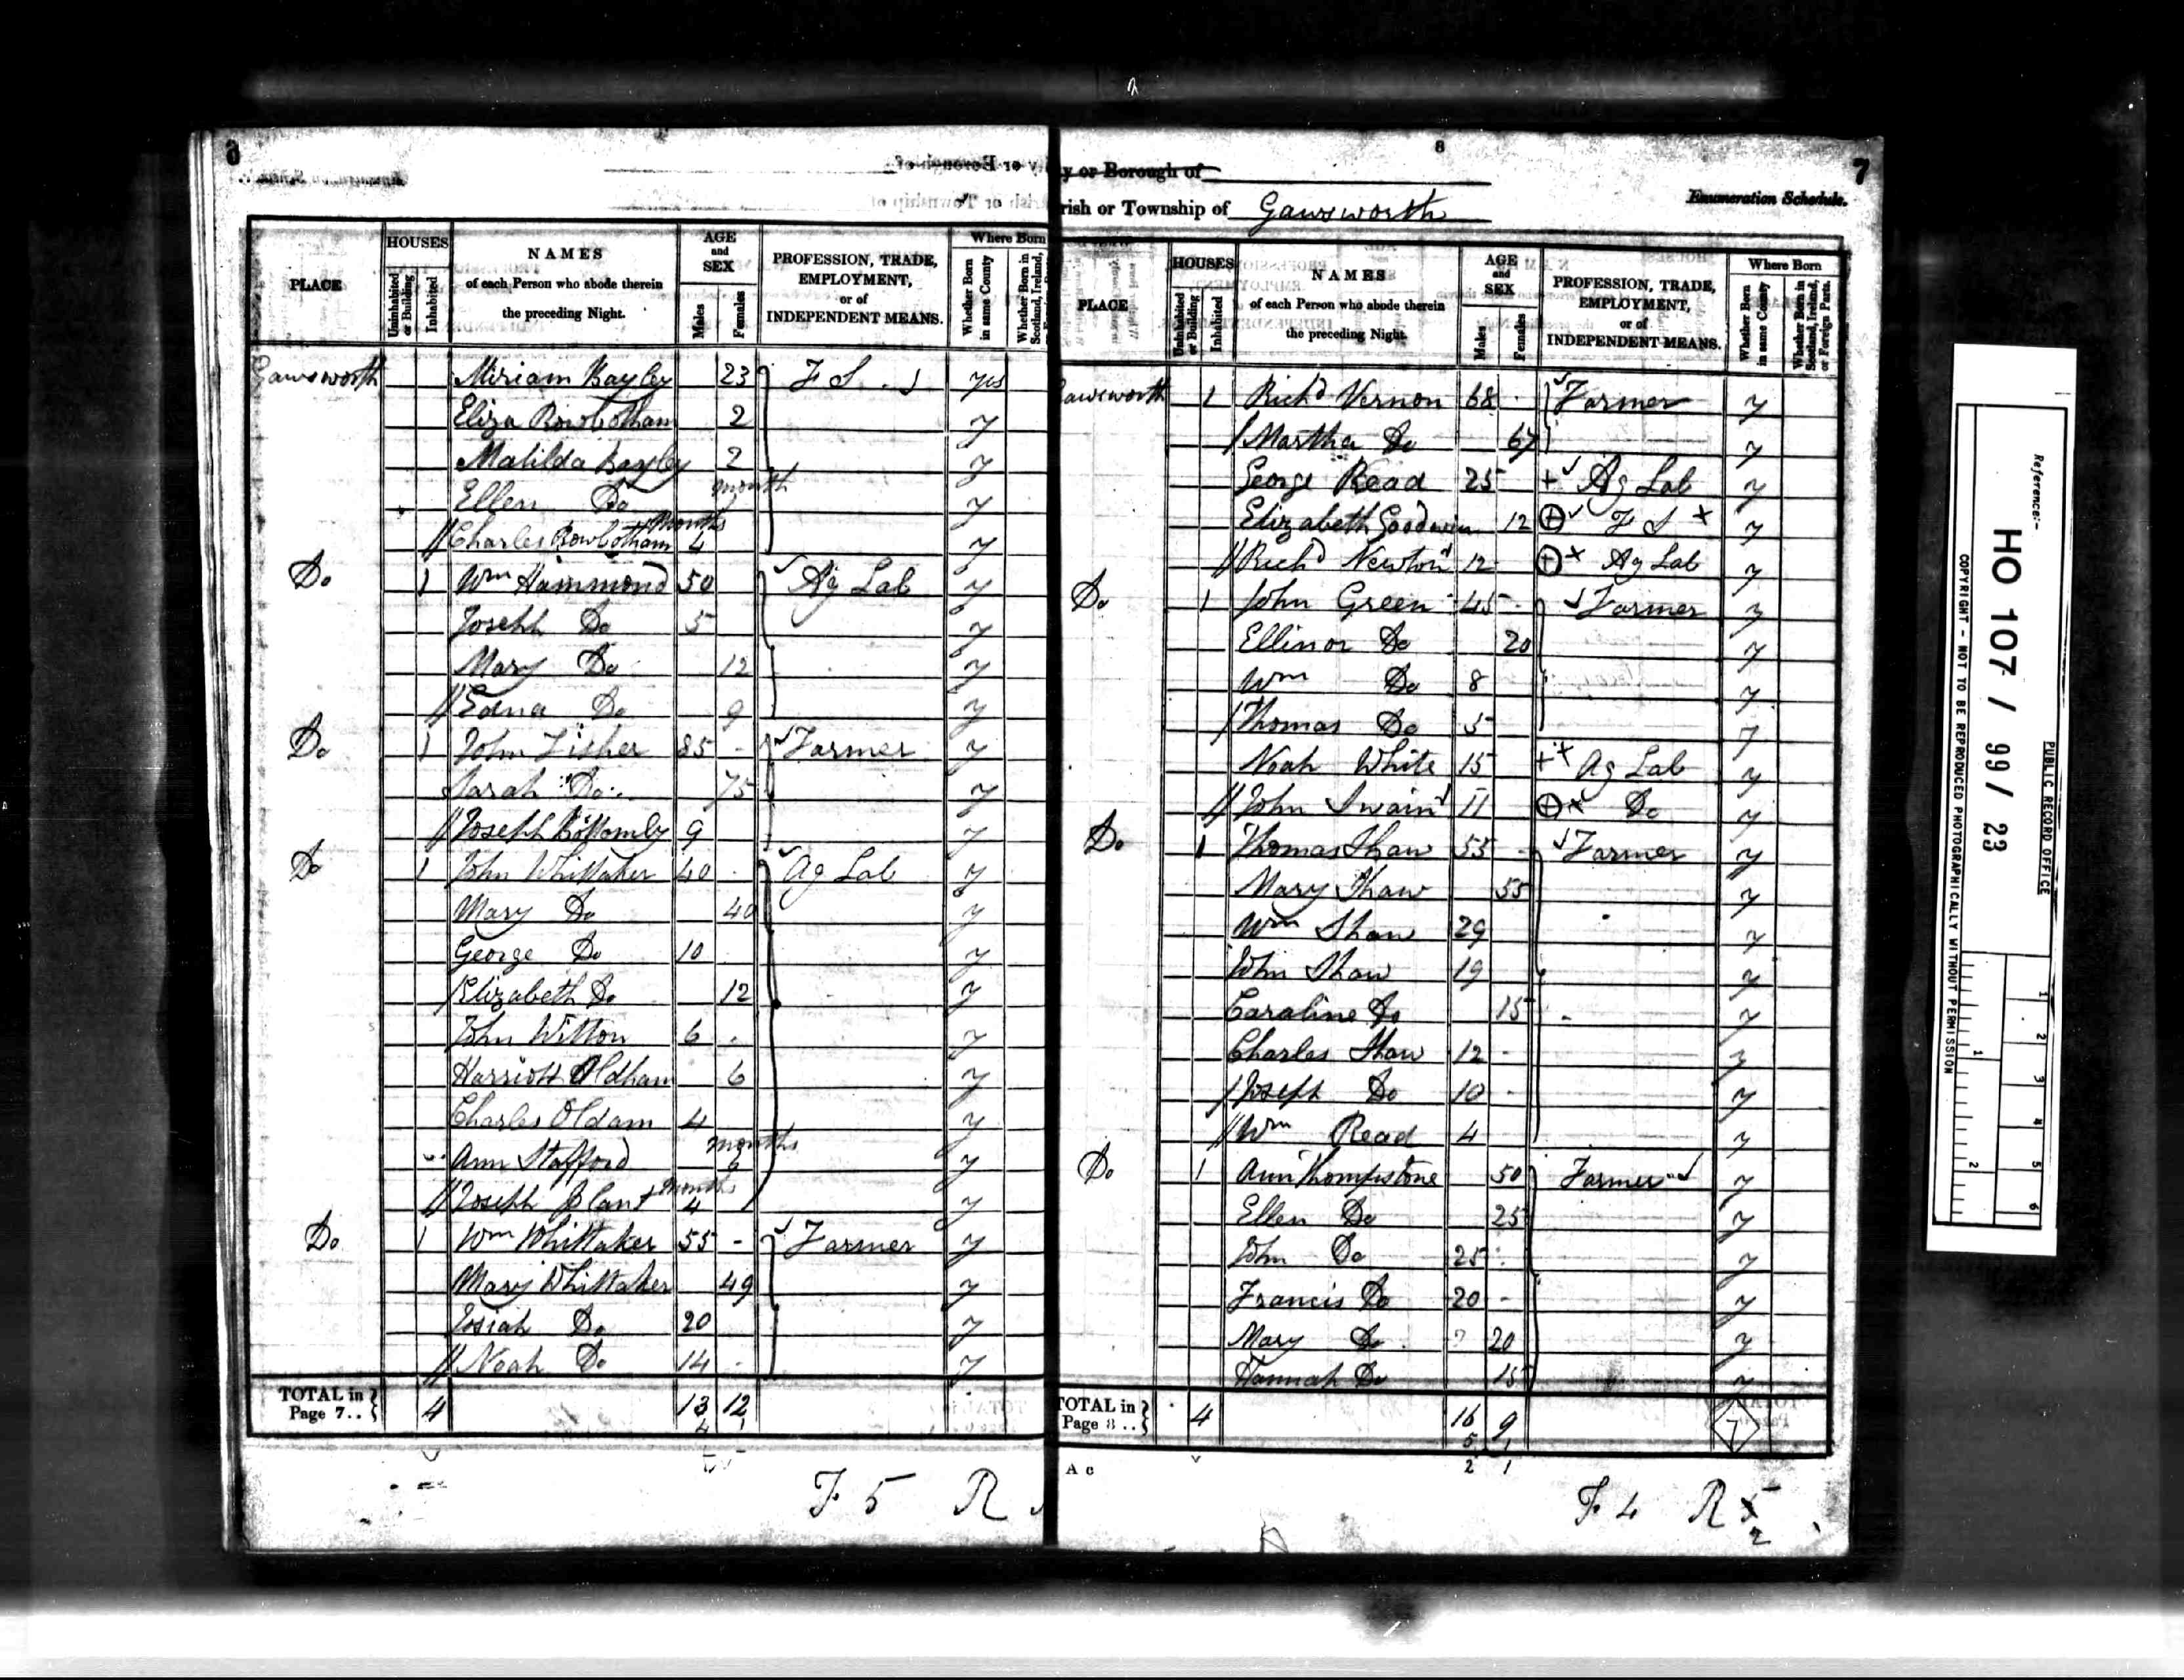 6
PLACE
HOUSES
Uninhabited or Building
Inhabited
NAMES
of each Person who abode therein
the preceding Night.
AGE
and
SEX
Males
Females
PROFESSION, TRADE,
EMPLOYMENT,
or of
INDEPENDENT MEANS.
Where Born
Whether Born in same County
Whether Born in Scotland, Ireland,
Gawsworth Miriam Bayley 23 F S yes
Eliza Rowbotham 2 y
Matilda Bayley 2 y
month
Ellen Do y
Months
Charles Rowbotham 4 y
Do 1 Wm Hammond 50 Ag Lab y
Joseph Do 5 y
Mary Do 12 y
Edna Do 9 y
Do 1 John Fisher 85 - Farmer y
Sarah Do 75 y
Joseph Bottomley 9 y
Do 1 John Whittaker 40 Ag Lab y
Mary Do 40 y
George Do 10 y
Elizabeth Do 12 y
John Witton 6 y
Harriott Oldham 6 y
Charles Oldam 4 y
months
Ann Stafford y
months
Joseph Plant 4 y
Do 1 Wm Whittaker 55 - Farmer y
Mary Whittaker 49 y
Josiah Do 20 y
Noah Do 14 y
TOTAL in
Page 7.. 4 13 12
4 1
F 5 R
8
7
y or Borough of
Enumeration Schedule.
rish or Township of Gawsworth
PLACE
HOUSES
Uninhabited or Building
Inhabited
NAMES
of each Person who abode therein
the preceding Night.
AGE
and
SEX
Males
Females
PROFESSION, TRADE,
EMPLOYMENT,
or of
INDEPENDENT MEANS.
Where Born
Whether Born in same County
Whether Born in Scotland, Ireland, or Foreign Parts.
awsworth 1 Richd Vernon 68 Farmer y
Martha Do 67 y
George Read 25 + Ag Lab y
Elizabeth Goodwin 12 F S x y
Richd Newton 12 x Ag Lab y
Do 1 John Green 45 Farmer y
Ellinor Do 20 y
Wm Do 8 y
Thomas Do 5 y
Noah White 15 + x Ag Lab y
John Swain 11 x Do y
Do 1 Thomas Shaw 55 - Farmer y
Mary Shaw 55 y
Wm Shaw 29 y
John Shaw 19 y
Caraline Do 15 y
Charles Shaw 12 - y
Joseph Do 10 - y
Wm Read 4 y
Do 1 Ann Thompstone 50 Farmer y
Ellen Do 25 y
John Do 25 y
Francis Do 20 - y
Mary Do 20 y
Hannah Do 15 y
TOTAL in
Page 8.. 4 16 9 7
5 1
A c 2 1
F 4 R 5
2
Reference:-
HO 107 / 99 / 23
PUBLIC RECORD OFFICE
COPYRIGHT - NOT TO BE REPRODUCED PHOTOGRAPHICALLY WITHOUT PERMISSION
1 2 3 4 5 6
1 2